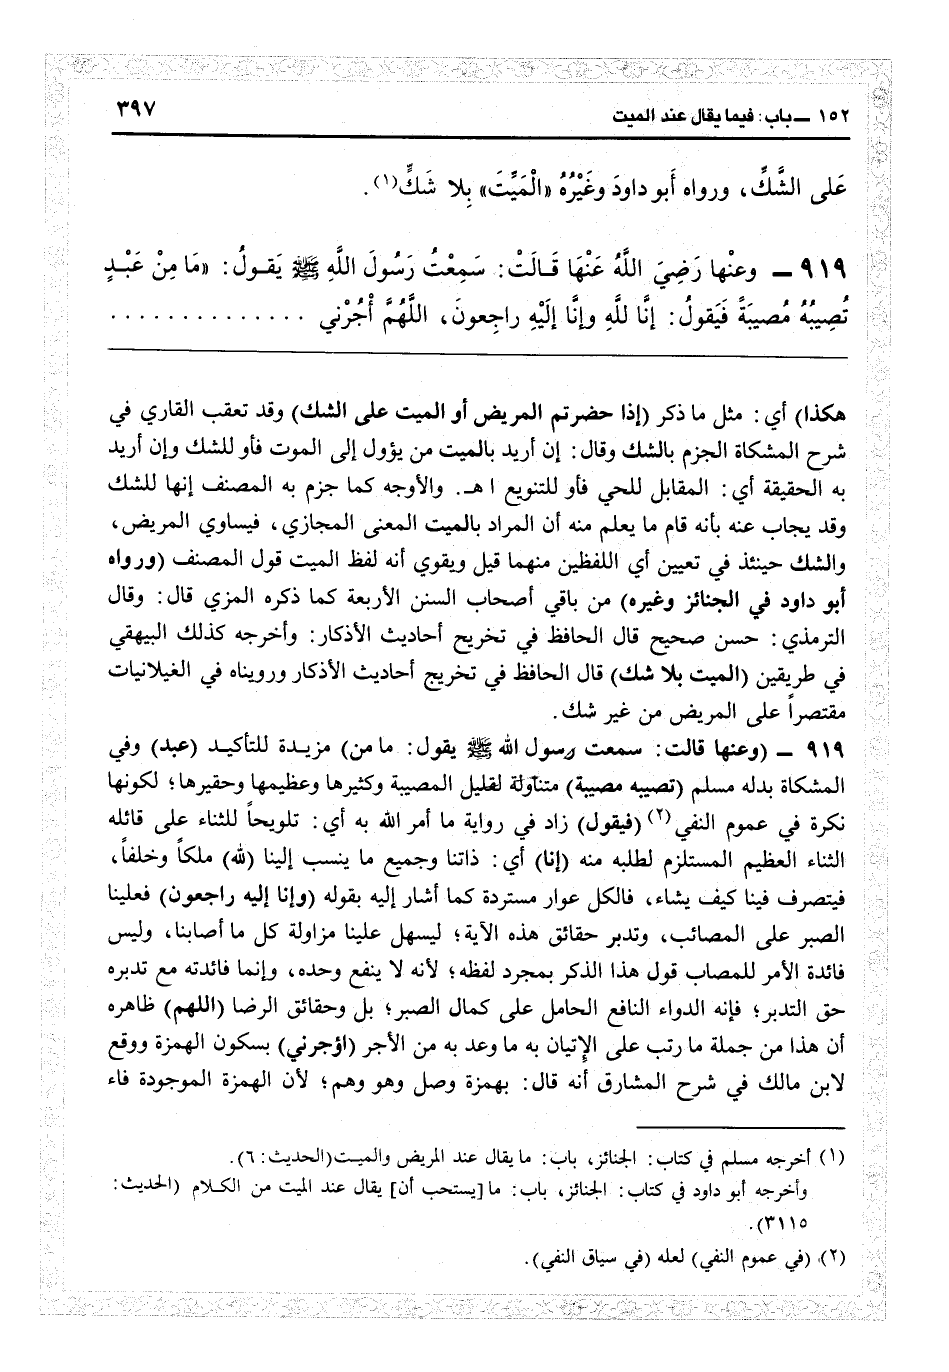 ١٥٢ ــ باب: فيما يقال عند الميت
٣٩٧
عَلى الشَّكِّ، ورواه أَبو داودَ وغَيْرُهُ «الْمَيِّتَ» بِلا شَكٍّ(١).
٩١٩ ــ وعنْها رَضِيَ اللَّهُ عَنْهَا قَـالَتْ: سَمِعْتُ رَسُولَ اللَّهِ ﷺ يَقـولُ: «مَا مِنْ عَبْـدٍ
تُصِيبُهُ مُصيبَةً فَيَقولُ: إنَّا للَّهِ وإنَّا إلَيْهِ راجِعونَ، اللَّهُمَّ أْجُرْني . . . . . . . . . . . . . .
هكذا) أي: مثل ما ذكر (إذا حضرتم المريض أو الميت على الشك) وقد تعقب القاري في
شرح المشكاة الجزم بالشك وقال: إن أريد بالميت من يؤول إلى الموت فأو للشك وإن أريد
به الحقيقة أي: المقابل للحي فأو للتنويع ا هـ. والأوجه كما جزم به المصنف إنها للشك
وقد يجاب عنه بأنه قام ما يعلم منه أن المراد بالميت المعنى المجازي، فيساوي المريض،
والشك حينئذ في تعيين أي اللفظين منهما قيل ويقوي أنه لفظ الميت قول المصنف (ورواه
أبو داود في الجنائز وغيره) من باقي أصحاب السنن الأربعة كما ذكره المزي قال: وقال
الترمذي: حسن صحيح قال الحافظ في تخريح أحاديث الأذكار: وأخرجه كذلك البيهقي
في طريقين (الميت بلا شك) قال الحافظ في تخريج أحاديث الأذكار ورويناه في الغيلانيات
مقتصراً على المريض من غير شك.
٩١٩ ــ (وعنها قالت: سمعت رسول الله ﷺ يقول: ما من) مزيـدة للتأكيـد (عبد) وفي
المشكاة بدله مسلم (تصيبه مصيبة) متناولة لقليل المصيبة وكثيرها وعظيمها وحقيرها؛ لكونها
نكرة في عموم النفي(٢) (فيقول) زاد في رواية ما أمر الله به أي: تلويحاً للثناء على قائله
الثناء العظيم المستلزم لطلبه منه (إنا) أي: ذاتنا وجميع ما ينسب إلينا (لله) ملكاً وخلفاً،
فيتصرف فينا كيف يشاء، فالكل عوار مستردة كما أشار إليه بقوله (وإنا إليه راجعون) فعلينا
الصبر على المصائب، وتدبر حقائق هذه الآية؛ ليسهل علينا مزاولة كل ما أصابنا، وليس
فائدة الأمر للمصاب قول هذا الذكر بمجرد لفظه؛ لأنه لا ينفع وحده، وإنما فائدته مع تدبره
حق التدبر؛ فإنه الدواء النافع الحامل على كمال الصبر؛ بل وحقائق الرضا (اللهم) ظاهره
أن هذا من جملة ما رتب على الإتيان به ما وعد به من الأجر (اؤجرني) بسكون الهمزة ووقع
لابن مالك في شرح المشارق أنه قال: بهمزة وصل وهو وهم؛ لأن الهمزة الموجودة فاء
(١) أخرجه مسلم في كتاب: الجنائز، باب: ما يقال عند المريض والميـت(الحديث: ٦).
وأخرجه أبو داود في كتاب: الجنائز، باب: ما [يستحب أن] يقال عند الميت من الكـلام (الحديث:
٣١١٥).
(٢) (في عموم النفي) لعله (في سياق النفي).